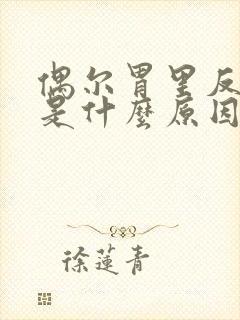 偶尔胃里反
是什麼原因
徐莲青